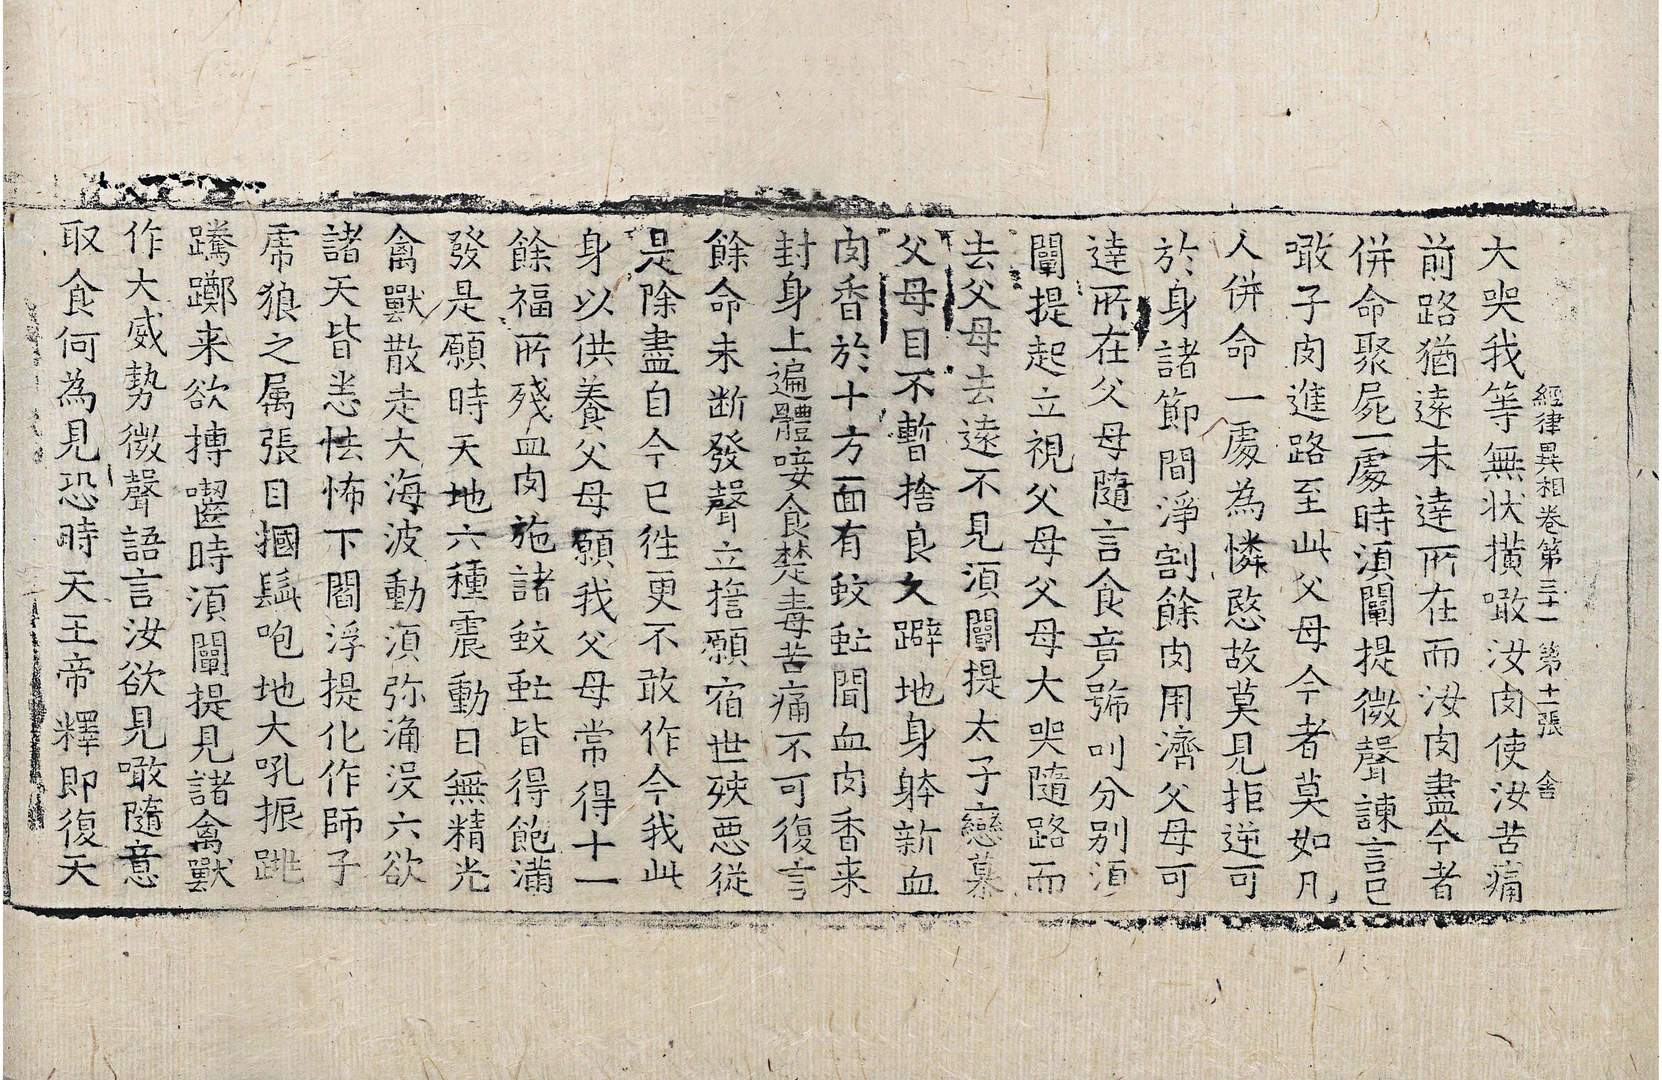 經律異相卷第三十一 第十一張 舍
大哭我等無状橫噉汝肉使汝苦痛
前路猶遠未達所在而汝肉盡今者
併命聚屍一處時湏闡提微聲諫言已
噉子肉進路至此父母今者莫如凡
人併命一處為憐愍故莫見拒逆可
於身諸節間淨割餘肉用濟父母可
達所在父母隨言食音號叫分別湏
闡提起立視父母父母大哭隨路而
去父母去遠不見湏闡提太子戀慕
父母目不暫捨良久躃地身躰新血
肉香於十方面有蚊䖟聞血肉香来
封身上遍體唼食楚毒苦痛不可復言
餘命未断發聲立擔願宿世殃惡從
是除盡自今已徃更不敢作今我此
身以供養父母願我父母常得十一
餘福所殘血肉施諸蚊䖟皆得飽滿
發是願時天地六種震動日無精光
禽獸散走大海波動湏弥涌没六欲
諸天皆恙怯怖下閻浮提化作師子
席狼之属張目摑髭咆地大吼振跳
騰躑来欲搏囓時湏闡提見諸禽獸
作大威勢微聲語言汝欲見噉隨意
取食何為見恐時天王帝釋即復天